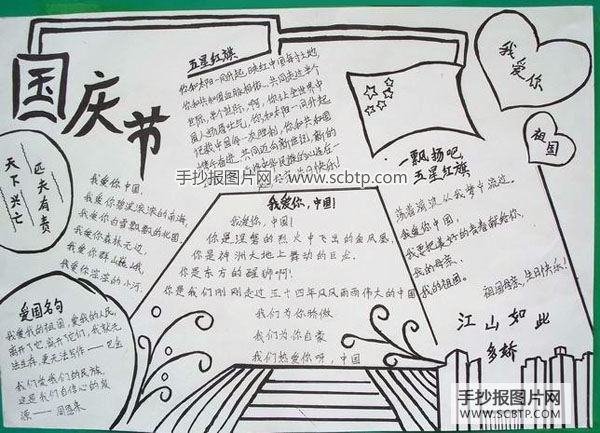 国庆节
五星红旗
你和太阳一同升起,映红中国每寸土地
你和共和国血脉相依,共同走过半个
世纪,半个世纪,啊,你让全世界中
国人扬眉吐气,你和太阳一同升起
记载中国每一次胜利,你和共和国
手抄报图片网 www.scbtp.com
我爱你
祖国
天下兴亡
匹夫有责
我爱你中国,
我爱你碧波滚滚的南海,
我爱你白雪飘飘的北国,
我爱你森林无边,
我爱你群山巍峨,
我爱你淙淙的小河.
一飘扬吧
五星红旗
荡着清波从我梦中流过。
我爱你中国,
我要把最好的青春献给你,
我的母亲、
我的祖国。
祖国母亲,生日快乐!
江山如此
多娇
我爱你,中国!
我爱你,中国!
你是涅槃的烈火中飞出的金凤凰,
你是神洲大地上舞动的巨龙.
你是东方的醒狮啊!
你是我们刚刚走过五十四年风风雨雨伟大的中国
我们为你骄傲
我们为你自豪
我们热爱你呀,中国
爱国名句
我爱我的祖国,爱我的人民,
离开了它,离开了他们,我就无
法生存,更无法写作——巴金
我们爱我们的民族
这是我们自信心的泉
源——周恩来
手抄报图片网
WWW.SCBTP.COM